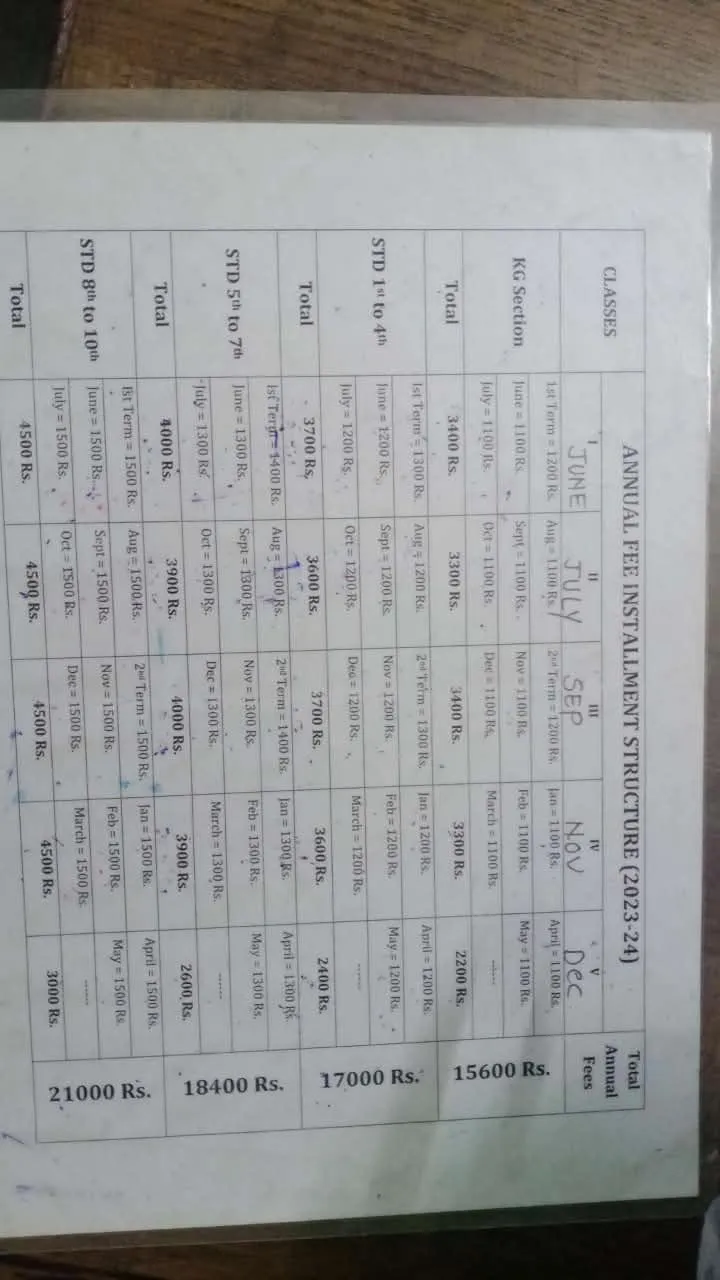 ANNUAL FEE INSTALLMENT STRUCTURE (2023-24)
CLASSES I II III IV V Total Annual Fees
JUNE JULY SEP NOV Dec
KG Section
1st Term = 1200 Rs. Aug = 1100 Rs. 2nd Term = 1200 Rs. Jan = 1100 Rs. April = 1100 Rs.
June = 1100 Rs. Sept = 1100 Rs. Nov = 1100 Rs. Feb = 1100 Rs. May = 1100 Rs.
July = 1100 Rs. Oct = 1100 Rs. Dec = 1100 Rs. March = 1100 Rs. ------
Total 3400 Rs. 3300 Rs. 3400 Rs. 3300 Rs. 2200 Rs. 15600 Rs.
STD 1st to 4th
1st Term = 1300 Rs. Aug = 1200 Rs. 2nd Term = 1300 Rs. Jan = 1200 Rs. April = 1200 Rs.
June = 1200 Rs. Sept = 1200 Rs. Nov = 1200 Rs. Feb = 1200 Rs. May = 1200 Rs.
July = 1200 Rs. Oct = 1200 Rs. Dec = 1200 Rs. March = 1200 Rs. ------
Total 3700 Rs. 3600 Rs. 3700 Rs. 3600 Rs. 2400 Rs. 17000 Rs.
STD 5th to 7th
1st Term = 1400 Rs. Aug = 1300 Rs. 2nd Term = 1400 Rs. Jan = 1300 Rs. April = 1300 Rs.
June = 1300 Rs. Sept = 1300 Rs. Nov = 1300 Rs. Feb = 1300 Rs. May = 1300 Rs.
July = 1300 Rs. Oct = 1300 Rs. Dec = 1300 Rs. March = 1300 Rs. ------
Total 4000 Rs. 3900 Rs. 4000 Rs. 3900 Rs. 2600 Rs. 18400 Rs.
STD 8th to 10th
1st Term = 1500 Rs. Aug = 1500 Rs. 2nd Term = 1500 Rs. Jan = 1500 Rs. April = 1500 Rs.
June = 1500 Rs. Sept = 1500 Rs. Nov = 1500 Rs. Feb = 1500 Rs. May = 1500 Rs.
July = 1500 Rs. Oct = 1500 Rs. Dec = 1500 Rs. March = 1500 Rs. ------
Total 4500 Rs. 4500 Rs. 4500 Rs. 4500 Rs. 3000 Rs. 21000 Rs.